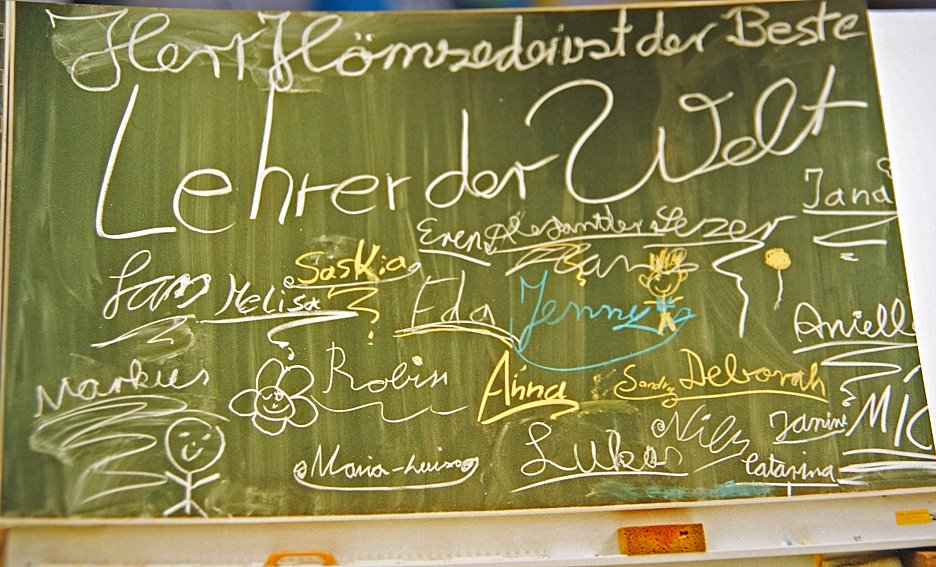 Herr Hömsedeivst der Beste
Lehrer der Welt
Jana
Eren Alexandter Sezer
Saskia
Sam Melisa Eda Jenny
Aniell
Markus Robin Anna Sandra Deborah
Maria-Luisa Lukas Nils Janine MIC
Catarina